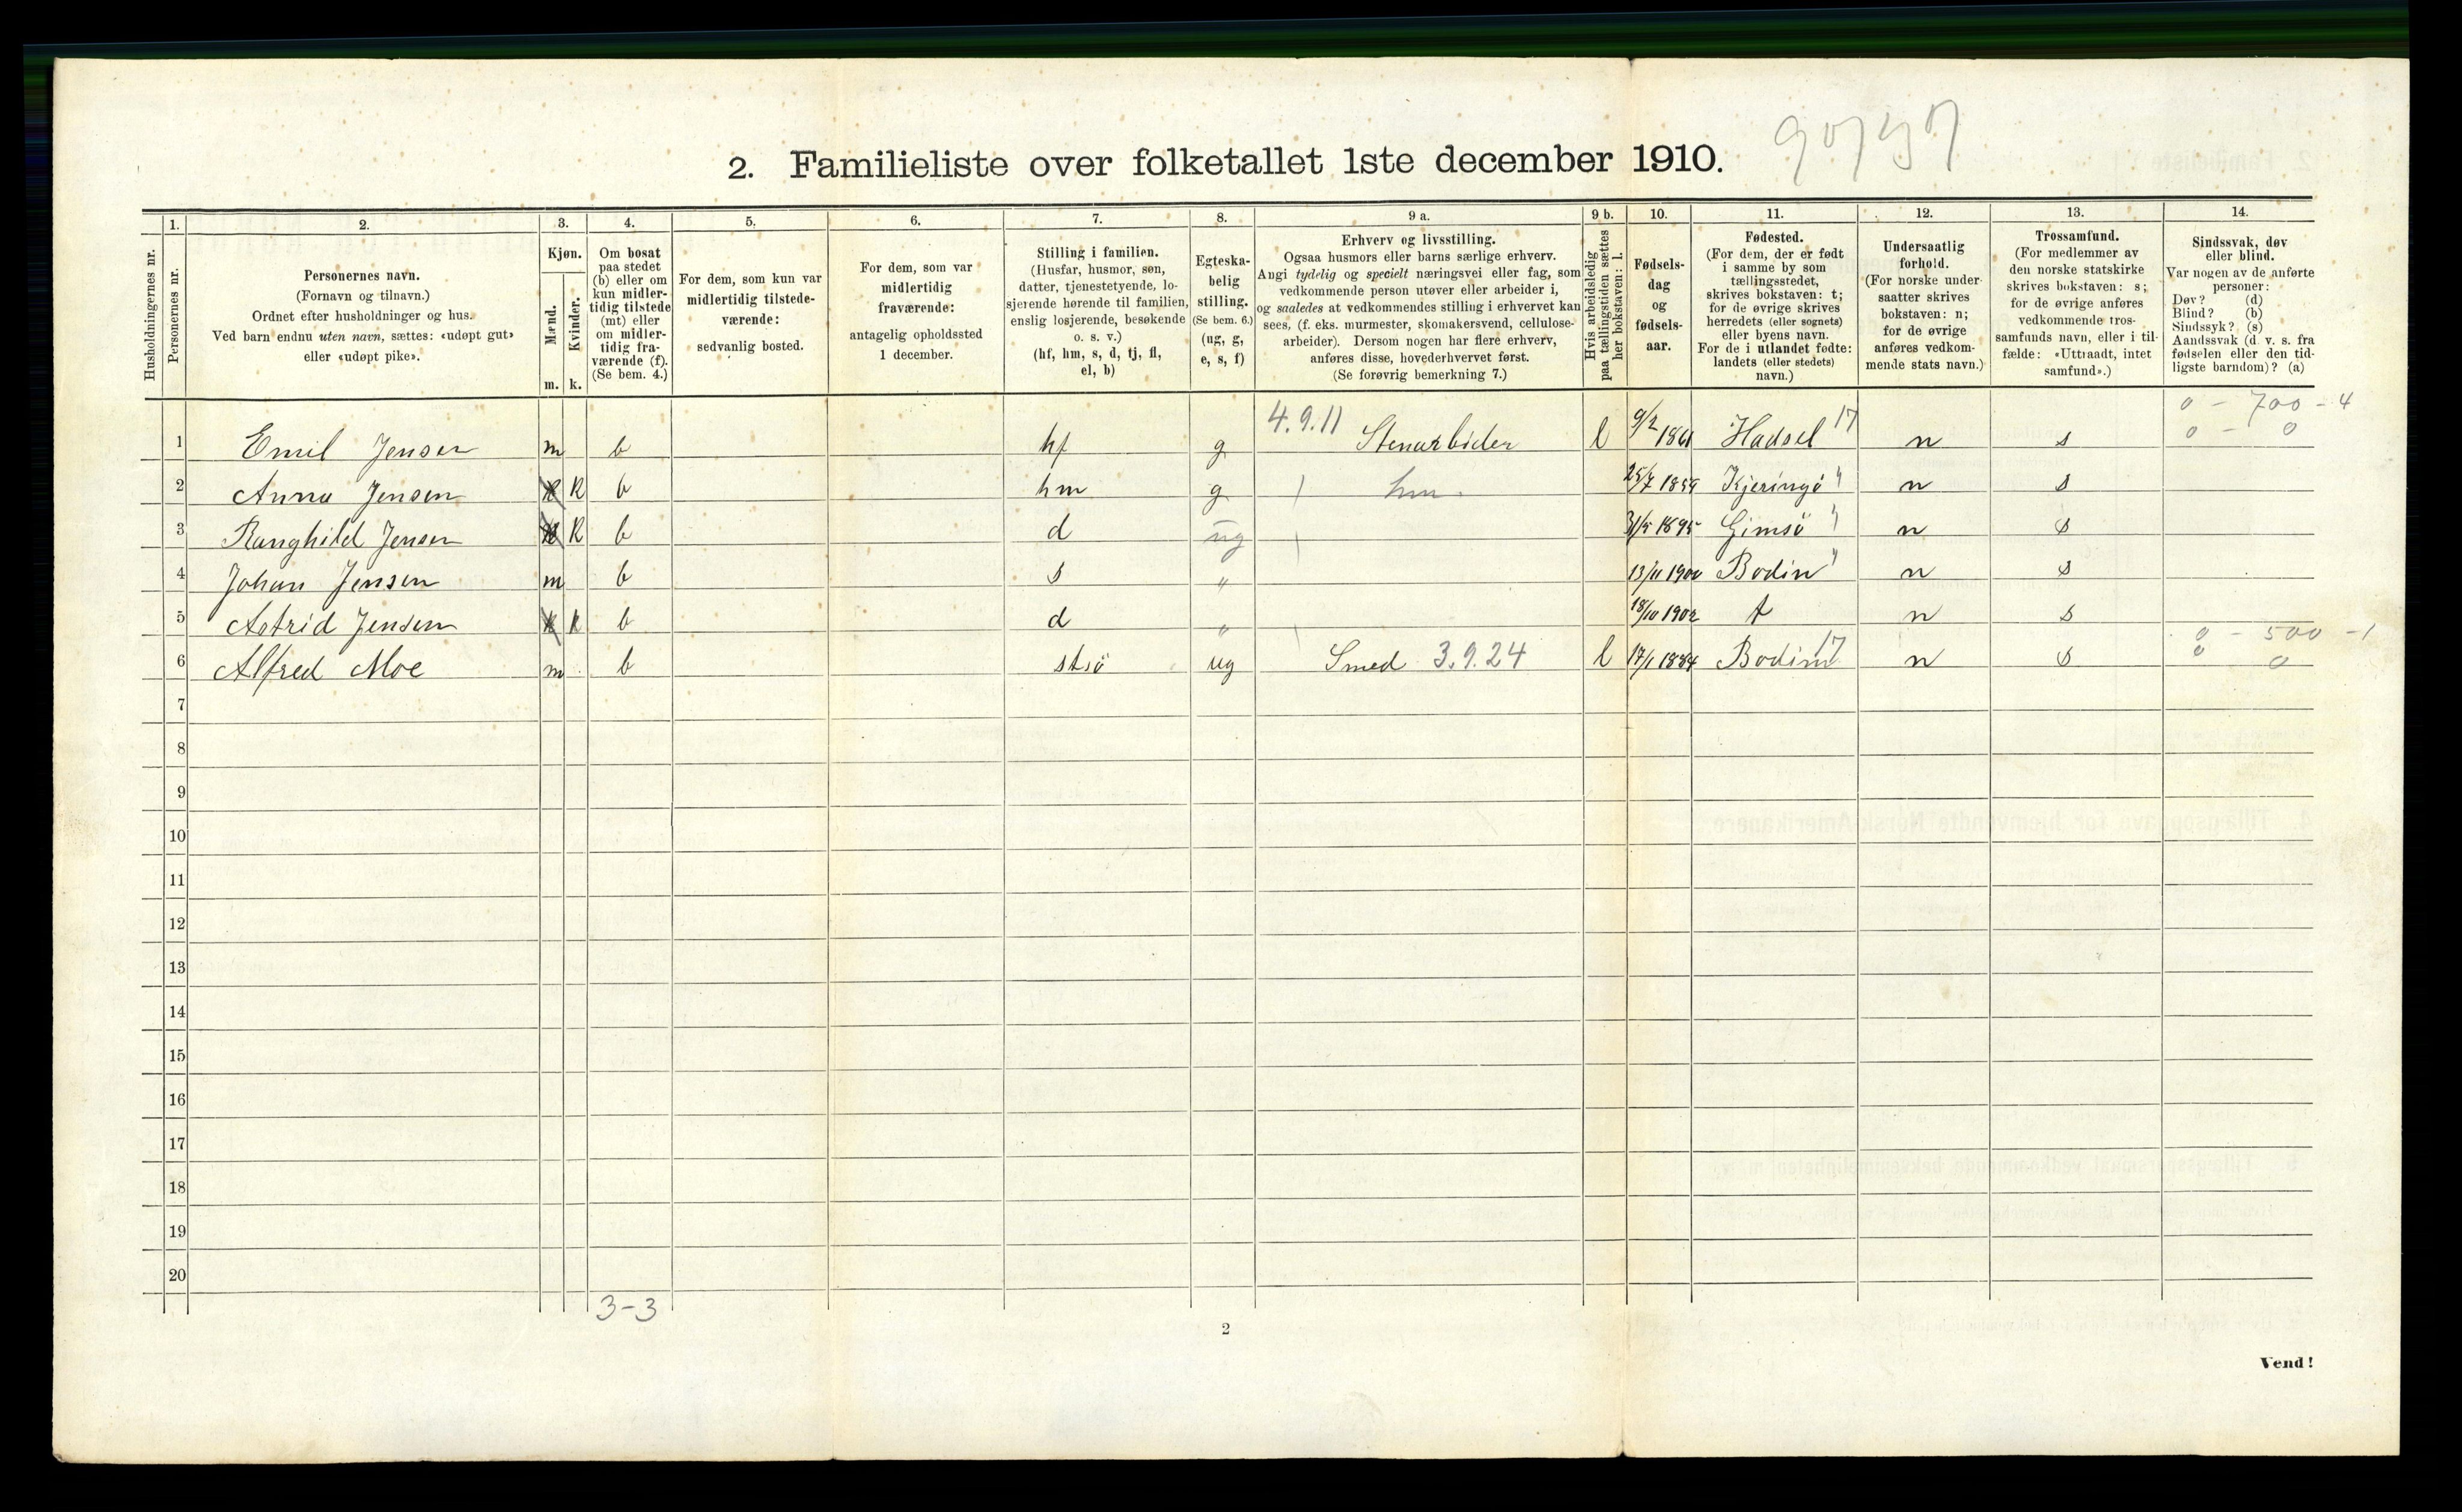 90757
2. Familieliste over folketallet 1ste december 1910.
Husholdningernes nr.
1. Personernes nr.
2. Personernes navn. (Fornavn og tilnavn.) Ordnet efter husholdninger og hus. Ved barn endnu uten navn, sættes: «udøpt gut» eller «udøpt pike».
3. Kjøn. Mænd. m. Kvinder. k.
4. Om bosat paa stedet (b) eller om kun midlertidig tilstede (mt) eller om midlertidig fraværende (f). (Se bem. 4.)
5. For dem, som kun var midlertidig tilstedeværende: sedvanlig bosted.
6. For dem, som var midlertidig fraværende: antagelig opholdssted 1 december.
7. Stilling i familien. (Husfar, husmor, søn, datter, tjenestetyende, losjerende hørende til familien, enslig losjerende, besøkende o. s. v.) (hf, hm, s, d, tj, fl, el, b)
8. Egteskabelig stilling. (Se bem. 6.) (ug, g, e, s, f)
9 a. Erhverv og livsstilling. Ogsaa husmors eller barns særlige erhverv. Angi tydelig og specielt næringsvei eller fag, som vedkommende person utøver eller arbeider i, og saaledes at vedkommendes stilling i erhvervet kan sees, (f. eks. murmester, skomakersvend, cellulosearbeider). Dersom nogen har flere erhverv, anføres disse, hovederhvervet først. (Se forøvrig bemerkning 7.)
9 b. Hvis arbeidsledig paa tællingstiden sættes her bokstaven: l.
10. Fødselsdag og fødselsaar.
11. Fødested. (For dem, der er født i samme by som tællingsstedet, skrives bokstaven: t; for de øvrige skrives herredets (eller sognets) eller byens navn. For de i utlandet fødte: landets (eller stedets) navn.)
12. Undersaatlig forhold. (For norske undersaatter skrives bokstaven: n; for de øvrige anføres vedkommende stats navn.)
13. Trossamfund. (For medlemmer av den norske statskirke skrives bokstaven: s; for de øvrige anføres vedkommende trossamfunds navn, eller i tilfælde: «Uttraadt, intet samfund».)
14. Sindssvak, døv eller blind. Var nogen av de anførte personer: Døv? (d) Blind? (b) Sindssyk? (s) Aandssvak (d. v. s. fra fødselen eller den tidligste barndom)? (a)
4.9.11 0 - 700 - 4
1 Emil Jensen m b hf g Stenarbider l 9/2 1861 Hadsel 17 n s 0 - 0
2 Anna Jensen k b hm g hm. 25/7 1859 Kjeringö " n s
3 Ranghild Jensen k b d ug 31/5 1895 Gimsö " n s
4 Johan Jensen m b s " 13/11 1900 Bodin " n s
5 Astrid Jensen k b d " 18/10 1902 t n s
0 - 500 - 1
6 Alfred Moe m b stsö ug Smed 3.9.24 l 17/1 1884 Bodin 17 n s 0 0
7
8
9
10
11
12
13
14
15
16
17
18
19
20
3-3
2
Vend!